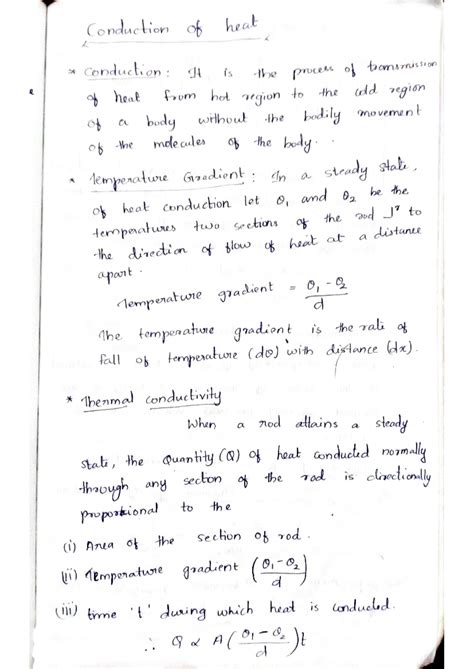 Conduction of heat
* Conduction : It is the process of transmission
of heat from hot region to the cold region
of a body without the bodily movement
of the molecules of the body.
* Temperature Gradient : In a steady state,
of heat conduction let θ₁ and θ₂ be the
temperatures two sections of the rod ⊥ʳ to
the direction of flow of heat at a distance
apart.
Temperature gradient = (θ₁ - θ₂)/d
The temperature gradient is the rate of
fall of temperature (dθ) with distance (dx).
* Thermal conductivity
When a rod attains a steady
state, the Quantity (Q) of heat conducted normally
through any section of the rod is directionally
proportional to the
(i) Area of the section of rod.
(ii) Temperature gradient ((θ₁ - θ₂)/d)
(iii) time 't' during which heat is conducted.
∴ Q ∝ A((θ₁ - θ₂)/d)t